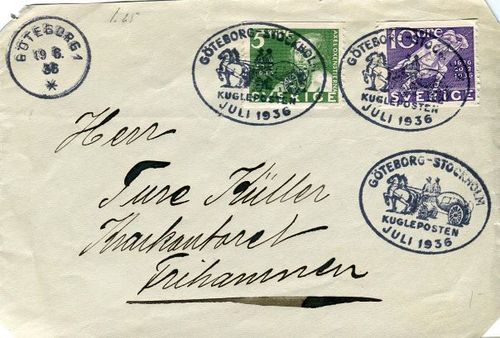 1.25
GÖTEBORG 1
19 6.
36
*
GÖTEBORG-STOCKHOLM
KUGLEPOSTEN
JULI 1936
5
GÖTEBORG-STOCKHOLM
KUGLEPOSTEN
JULI 1936
10
1636
20/2
1936
SVERIGE
GÖTEBORG-STOCKHOLM
KUGLEPOSTEN
JULI 1936
Herr
Ture Küller
Frihamnen